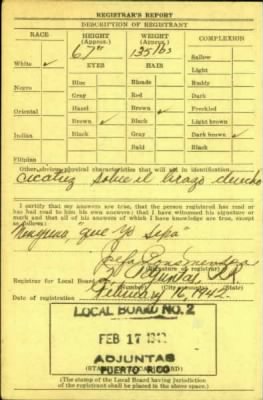 REGISTRAR'S REPORT
DESCRIPTION OF REGISTRANT
RACE
HEIGHT
(Approx.)
WEIGHT
(Approx.)
COMPLEXION
6'7"
135 lbs
Sallow
White ✓
EYES
HAIR
Light
Blue
Blonde
Ruddy
Negro
Gray
Red
Dark
Hazel
Brown ✓
Freckled
Oriental
Brown ✓
Black
Light brown
Indian
Black
Gray
Dark brown ✓
Bald
Black
Filipino
Other obvious physical characteristics that will aid in identification
cicatriz sobre el brazo derecho
I certify that my answers are true, that the person registered has read or
has had read to him his own answers; that I have witnessed his signature or
mark and that all of his answers of which I have knowledge are true, except
as follows:
Ninguna, que yo sepa
(Signature of registrar)
Registrar for Local Board
2
Adjuntas
P.R.
(Number)
(City or county)
(State)
Date of registration
February 16, 1942.
LOCAL BOARD NO. 2
FEB 17 1942
ADJUNTAS
PUERTO RICO
(The stamp of the Local Board having jurisdiction
of the registrant shall be placed in the above space.)